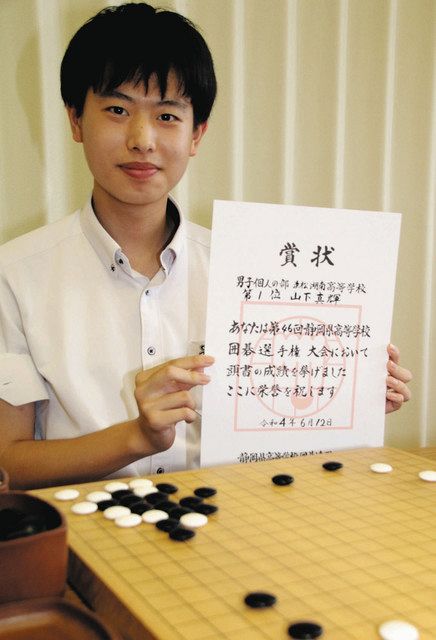 賞状
男子個人の部 浜松湖南高等学校
第1位 山下真輝
あなたは第46回静岡県高等学校
囲碁選手権大会において
頭書の成績を挙げました
ここに栄誉を祝します
令和4年6月12日
静岡県高等学校